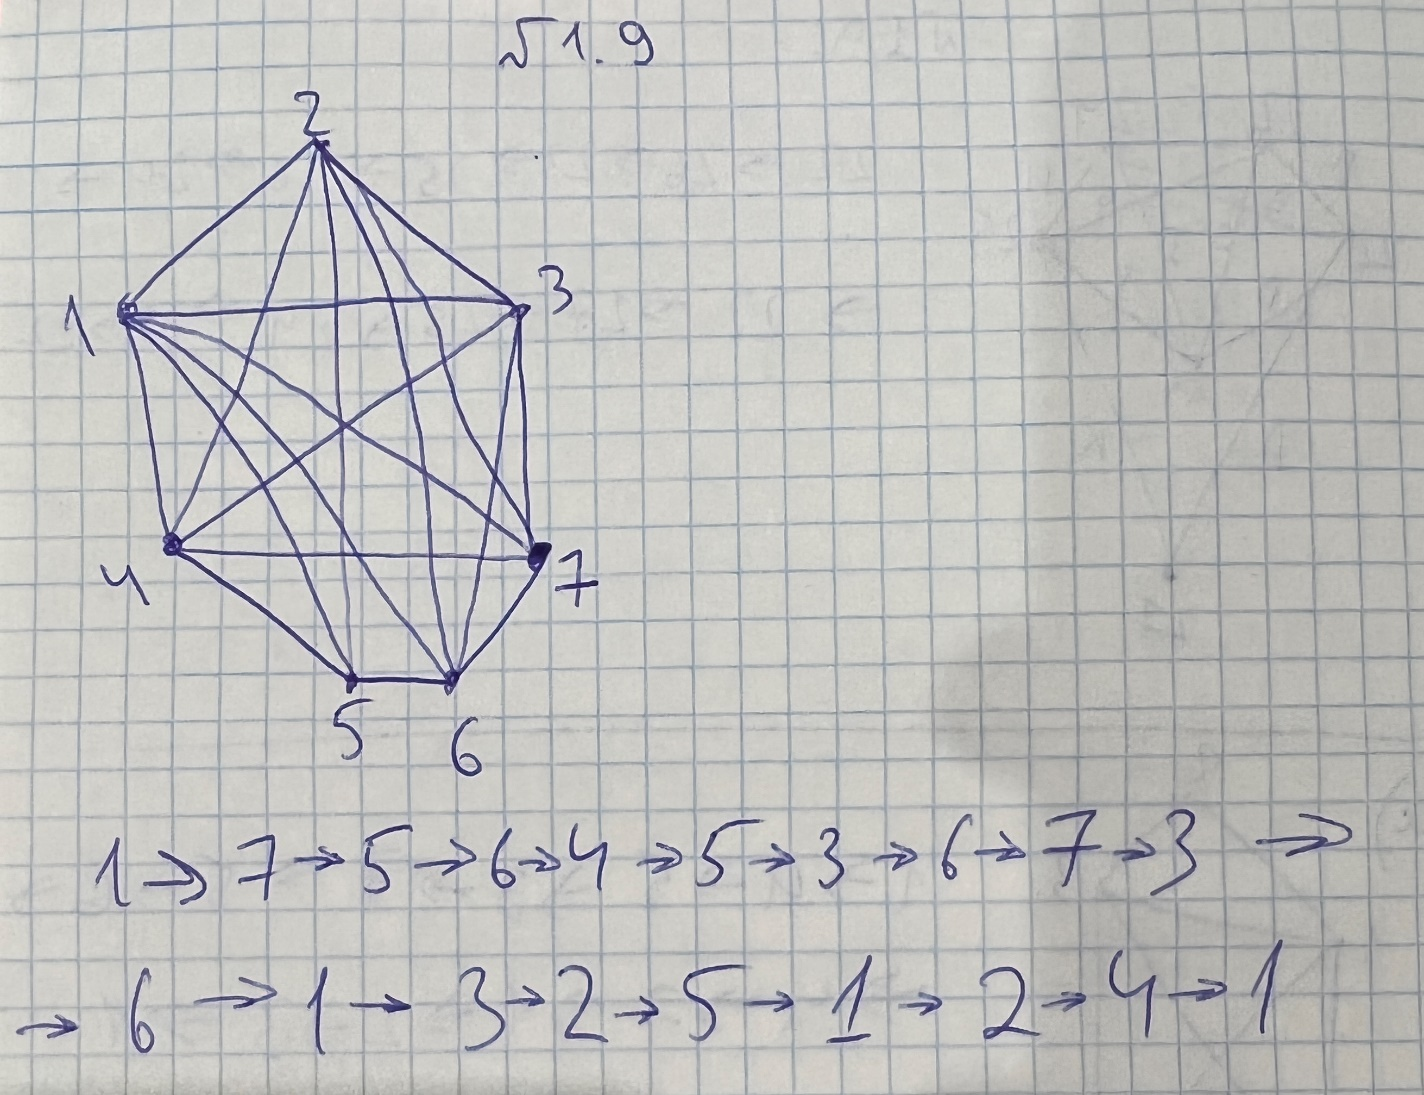 √1.9
2
1
3
4
7
5
6
1→7→5→6→4→5→3→6→7→3→
→6→1→3→2→5→1→2→4→1